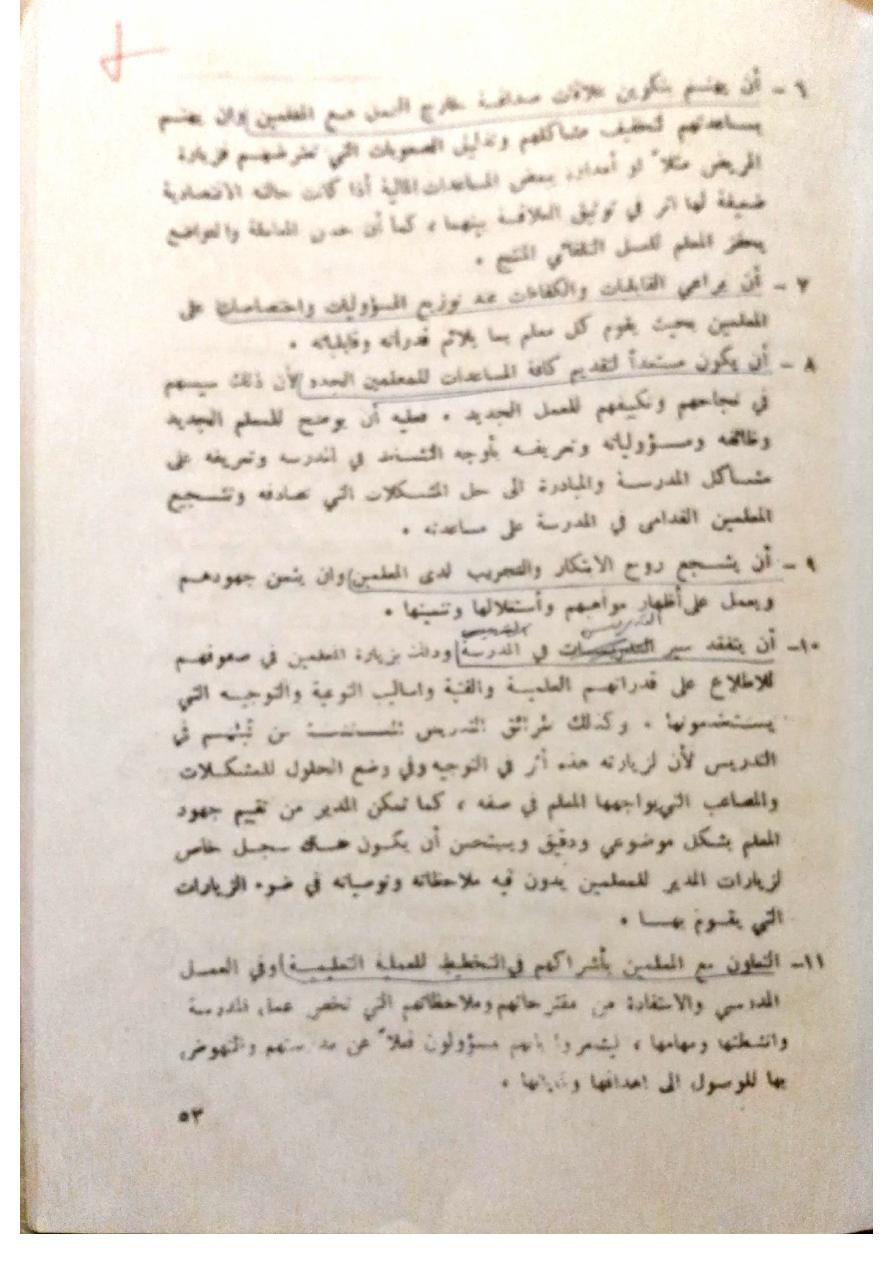 ٦ – أن يهتم بتكوين علاقات صداقة خارج العمل مع المعلمين وان يهتم
بمساعدتهم لتخفيف مشاكلهم وتذليل الصعوبات التي تعترضهم فزيارة
المريض مثلاً او أمداده ببعض المساعدات المالية أذا كانت حالته الاقتصادية
ضعيفة لها اثر في توثيق العلاقة بينهما ، كما أن حسن المعاملة والتواضع
يحفز المعلم للعمل التلقائي المنتج .
٧ – أن يراعي القابليات والكفاءات عند توزيع المسؤوليات واختصاصاتها على
المعلمين بحيث يقوم كل معلم بما يلائم قدراته وقابلياته .
٨ – أن يكون مستعداً لتقديم كافة المساعدات للمعلمين الجدد لأن ذلك سيسهم
في نجاحهم وتكيفهم للعمل الجديد . فعليه أن يوضح للمعلم الجديد
وظائفه ومسؤولياته وتعريفه بأوجه النشاط في المدرسة وتعريفه على
مشاكل المدرسة والمبادرة الى حل المشكلات التي تصادفه وتشجيع
المعلمين القدامى في المدرسة على مساعدته .
٩ – أن يشجع روح الابتكار والتجريب لدى المعلمين وان يثمن جهودهم
ويعمل على أظهار مواهبهم وأستغلالها وتنميتها .
التدريس
١٠– أن يتفقد سير في المدرسة وذلك بزيارة المعلمين في صفوفهم
للاطلاع على قدراتهم العلمية والفنية واساليب التوعية والتوجيه التي
يستخدمونها . وكذلك طرائق التدريس المستخدمة من قبلهم في
التدريس لأن لزيارته هذه أثر في التوجيه وفي وضع الحلول للمشكلات
والمصاعب التي يواجهها المعلم في صفه ، كما تمكن المدير من تقييم جهود
المعلم بشكل موضوعي ودقيق ويستحسن أن يكون هناك سجل خاص
لزيارات المدير للمعلمين يدون فيه ملاحظاته وتوصياته في ضوء الزيارات
التي يقوم بها .
١١– التعاون مع المعلمين بأشراكهم في التخطيط للعملية التعليمية وفي العمل
المدرسي والاستفادة من مقترحاتهم وملاحظاتهم التي تخص عمل المدرسة
وانشطتها ومهامها ، ليشعروا بانهم مسؤولون فعلاً عن مدرستهم والنهوض
بها للوصول الى اهدافها وغاياتها .
٥٣